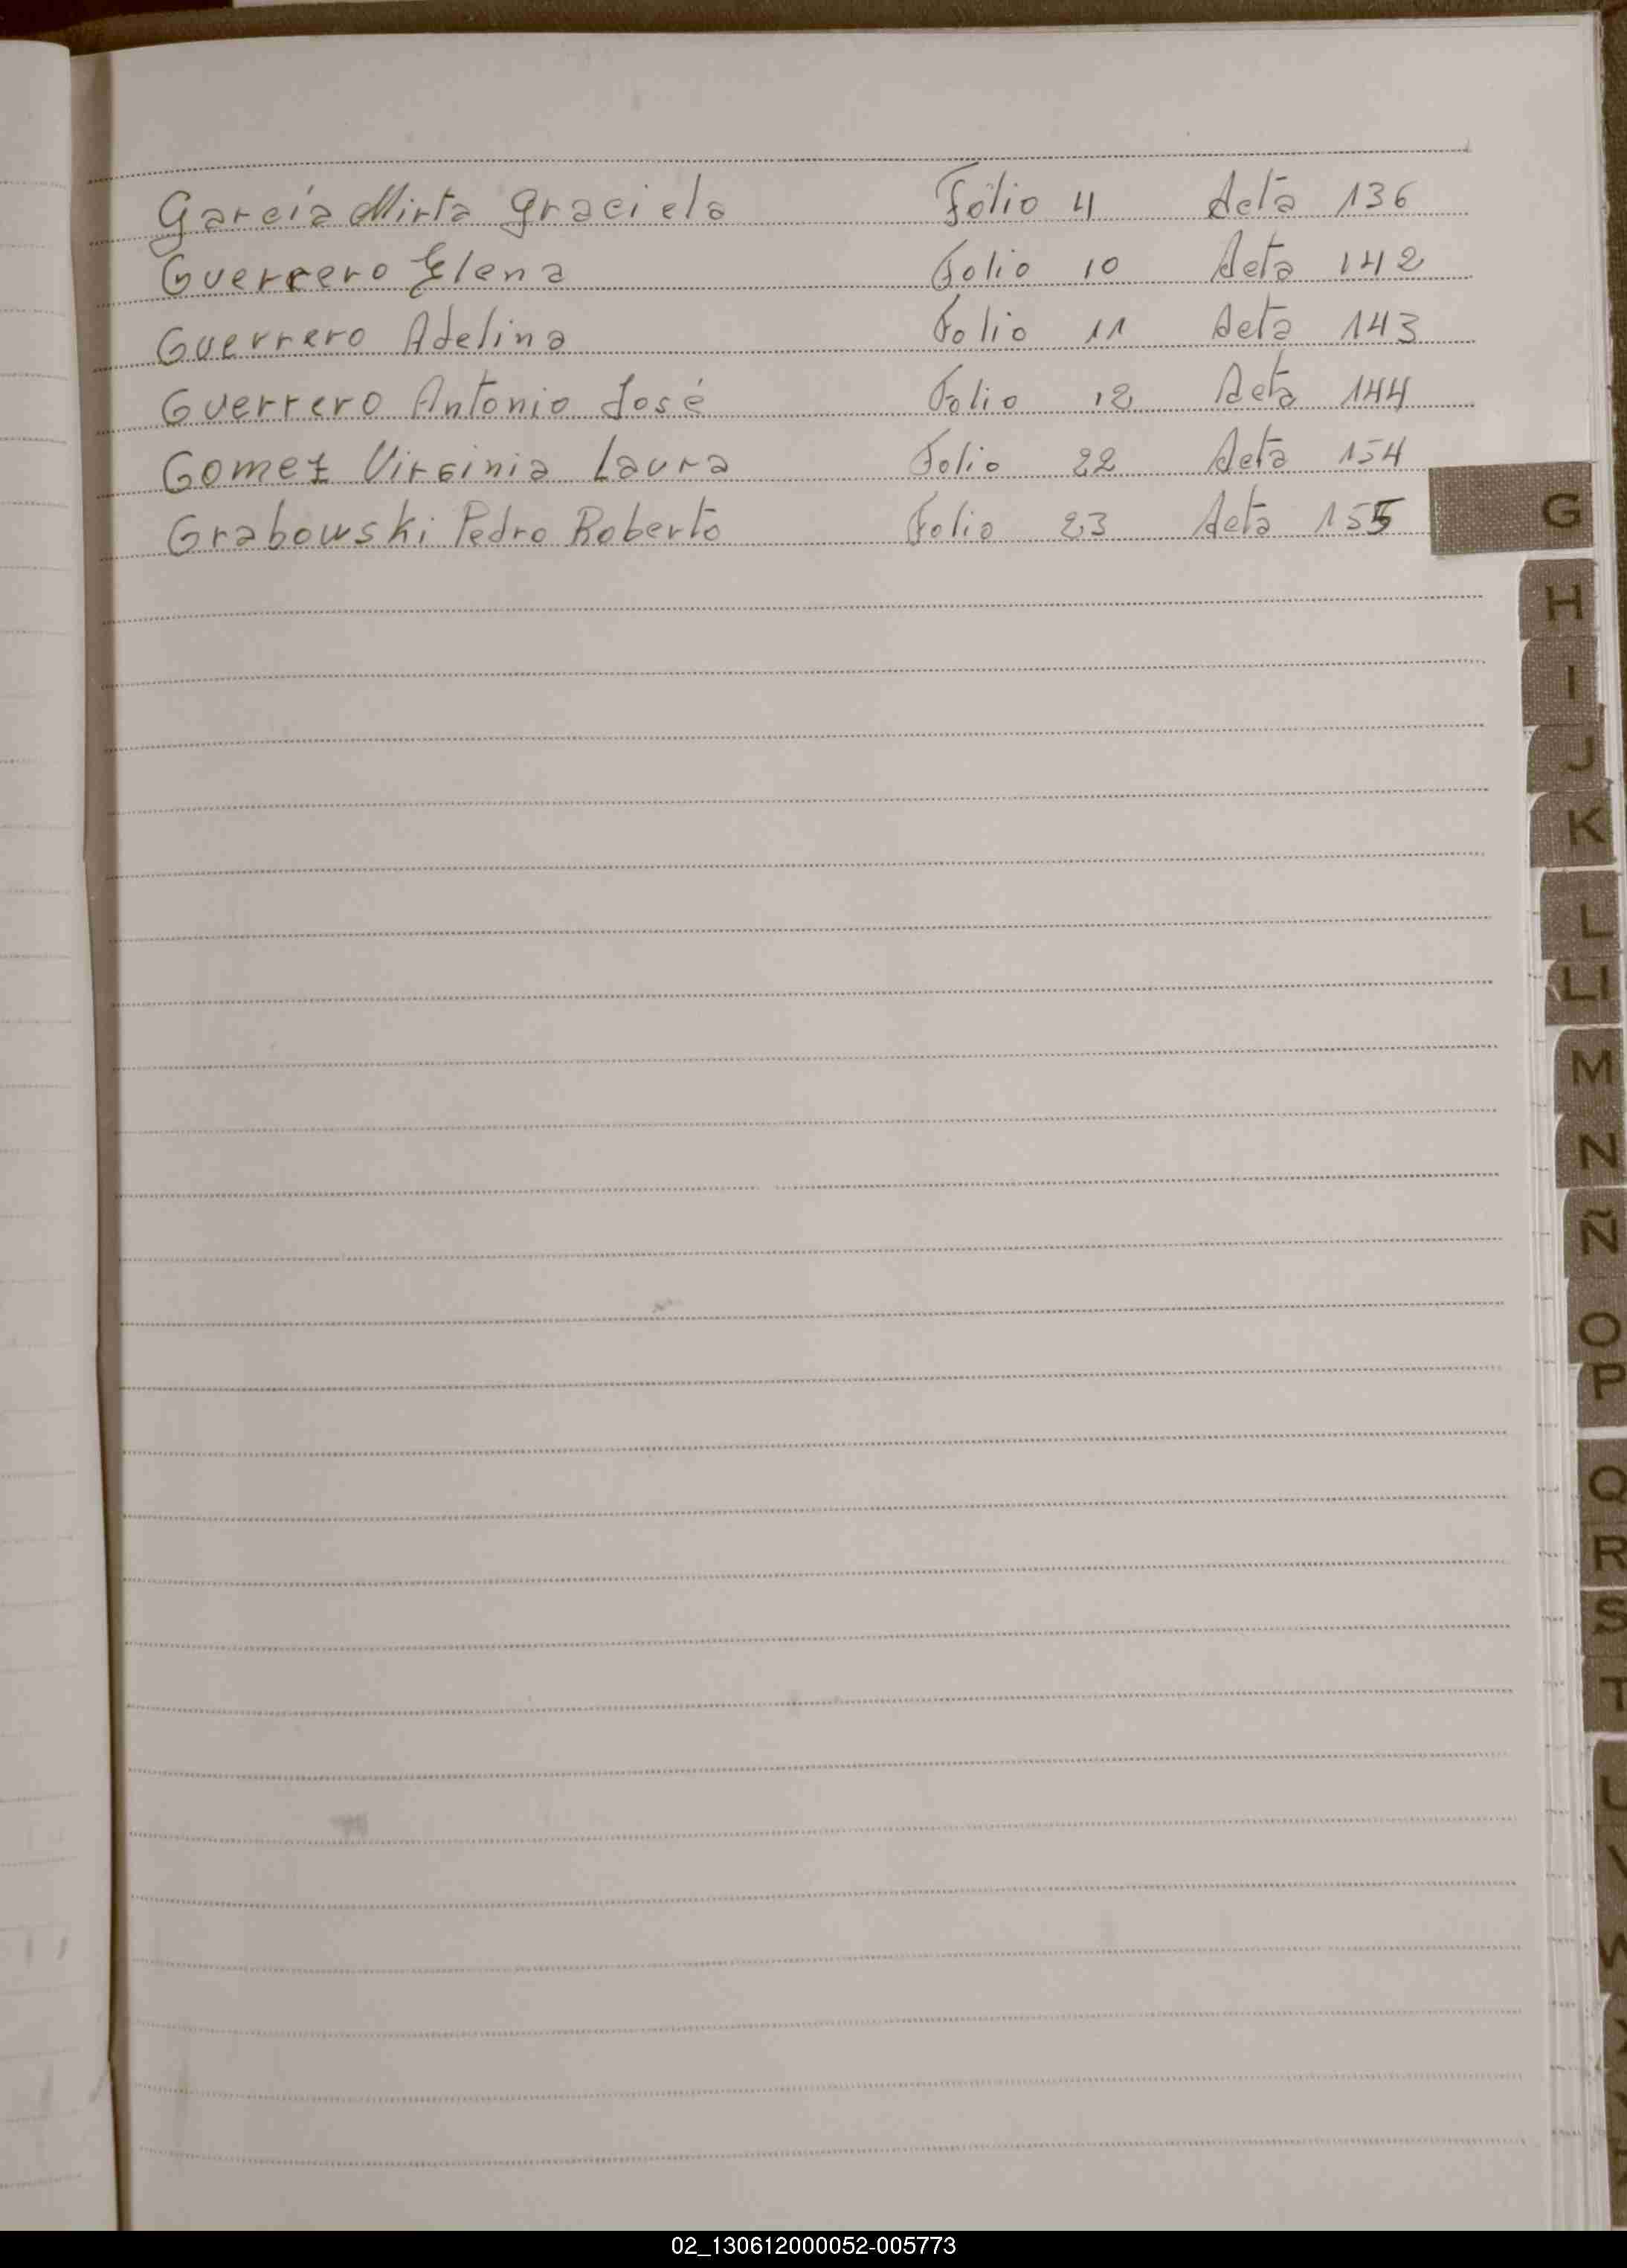 García Mirta Graciela Folio 4 Acta 136
Guerrero Elena Folio 10 Acta 142
Guerrero Adelina Folio 11 Acta 143
Guerrero Antonio José Folio 12 Acta 144
Gomez Virginia Laura Folio 22 Acta 154
Grabowski Pedro Roberto Folio 23 Acta 155
G
H
I
J
K
L
Ll
M
N
Ñ
O
P
Q
R
S
T
U
V
02_130612000052-005773